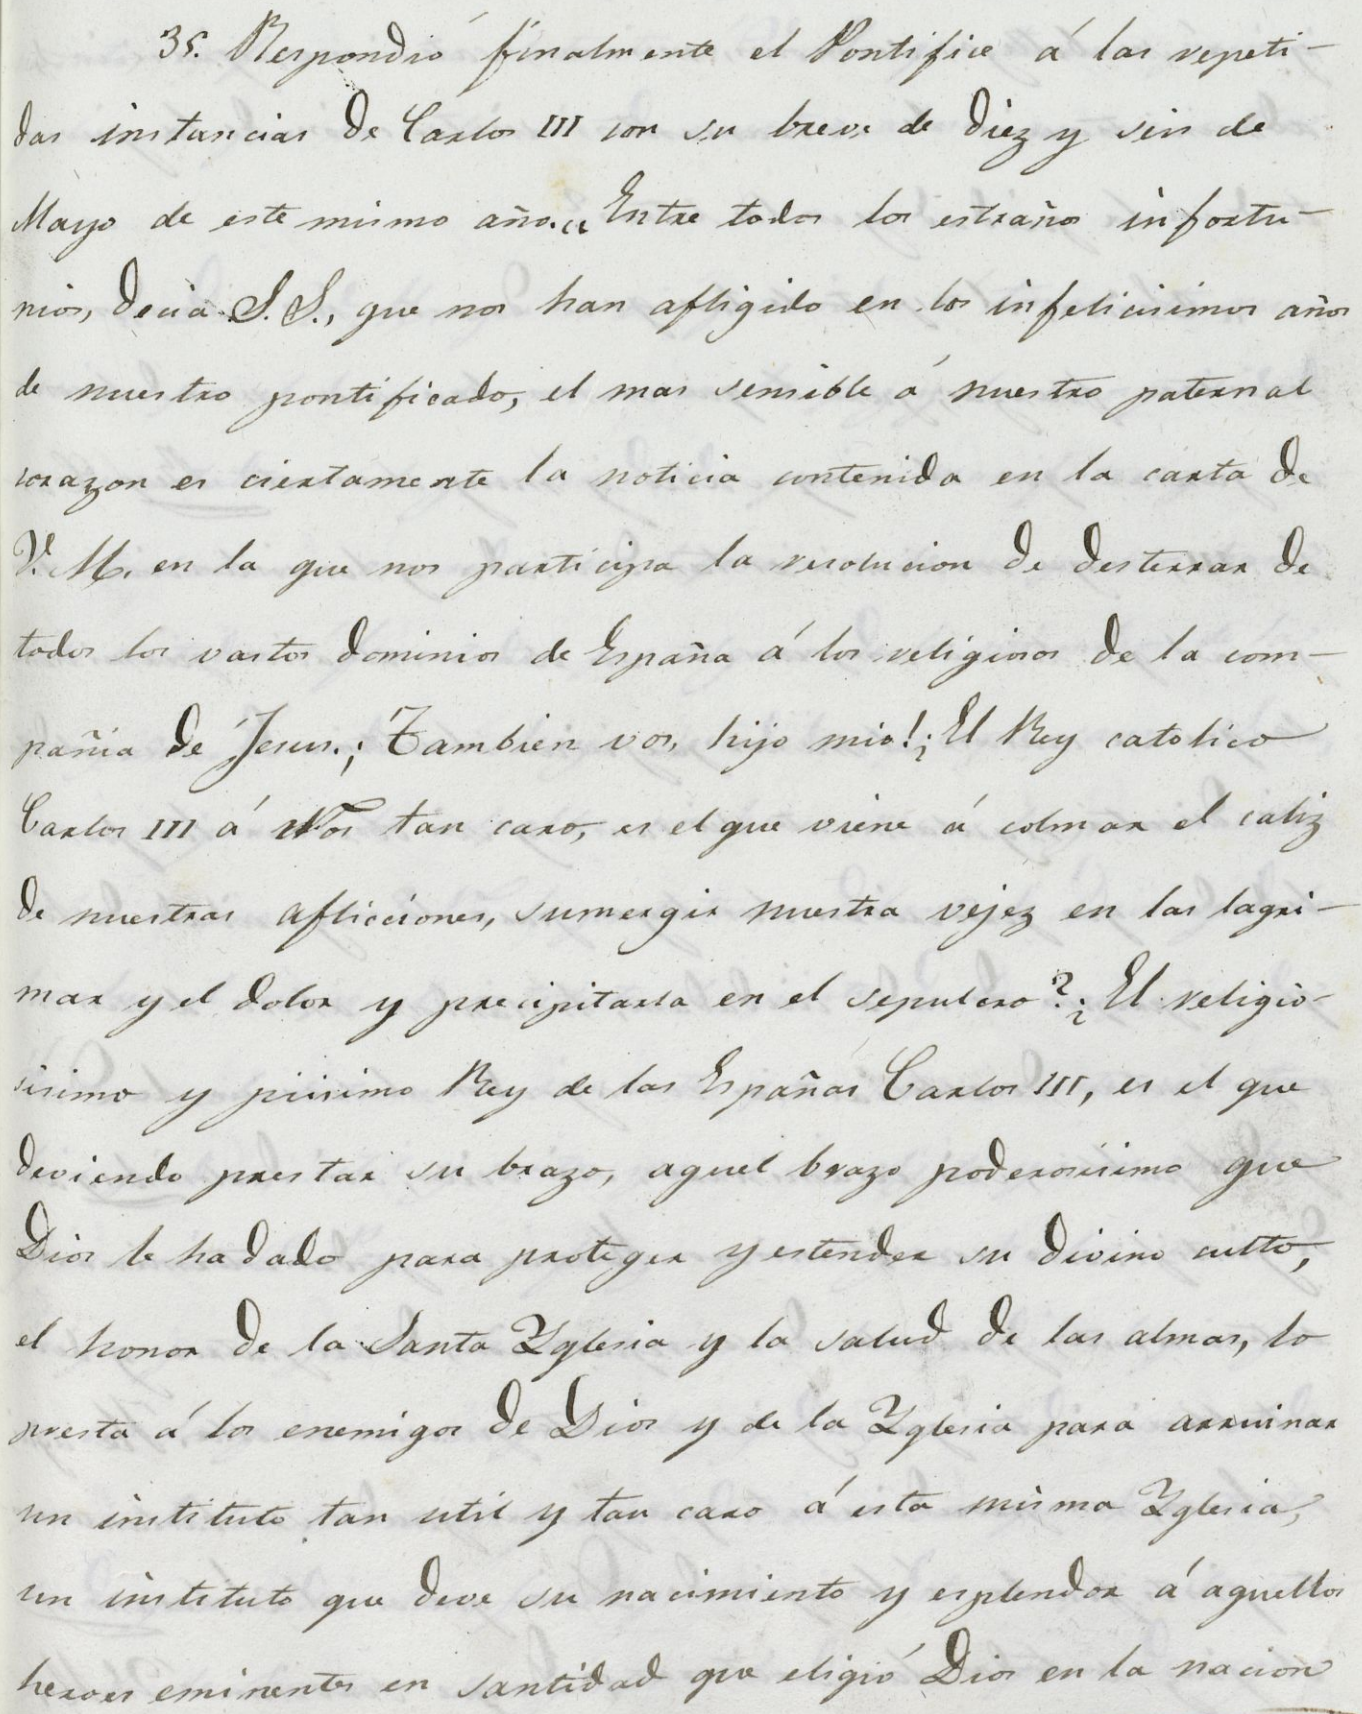 35. Respondió finalmente el Pontifice á las repeti-
das instancias de Carlos III con su breve de diez y seis de
Mayo de este mismo año. „Entre todos los estraños infortu-
nios, decia S.S., que nos han afligido en los infelicisimos años
de nuestro pontificado, el mas sensible á nuestro paternal
corazon es ciertamente la noticia contenida en la carta de
V. M. en la que nos participa la resolucion de desterrar de
todos los vastos dominios de España á los religiosos de la com-
pañia de Jesus. ¡Tambien vos, hijo mio! ¿El Rey catolico
Carlos III á Nos tan caro, es el que viene á colmar el caliz
de nuestras aflicciones, sumergir nuestra vejez en las lagri-
mas y el dolor y precipitarla en el sepulcro? ¿El religio-
sisimo y piisimo Rey de las Españas Carlos III, es el que
deviendo prestar su brazo, aquel brazo poderosisimo que
Dios le ha dado para proteger y estender su divino culto,
el honor de la Santa Yglesia y la salud de las almas, lo
presta á los enemigos de Dios y de la Yglesia para arruinar
un instituto tan util y tan caro á esta misma Yglesia,
un instituto que deve su nacimiento y esplendor á aquellos
heroes eminentes en santidad que eligió Dios en la nacion